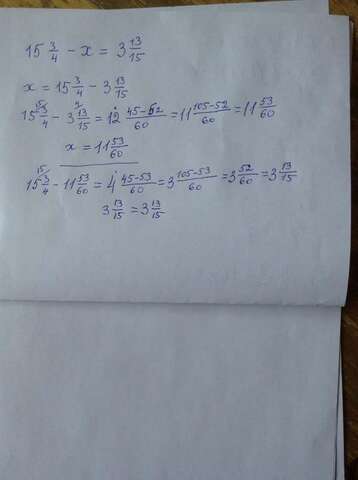 15 3/4 − x = 3 13/15
x = 15 3/4 − 3 13/15
15 3/4 − 3 13/15 = 12 (45−52)/60 = 11 (105−52)/60 = 11 53/60
x = 11 53/60
15 3/4 − 11 53/60 = 4 (45−53)/60 = 3 (105−53)/60 = 3 52/60 = 3 13/15
3 13/15 = 3 13/15